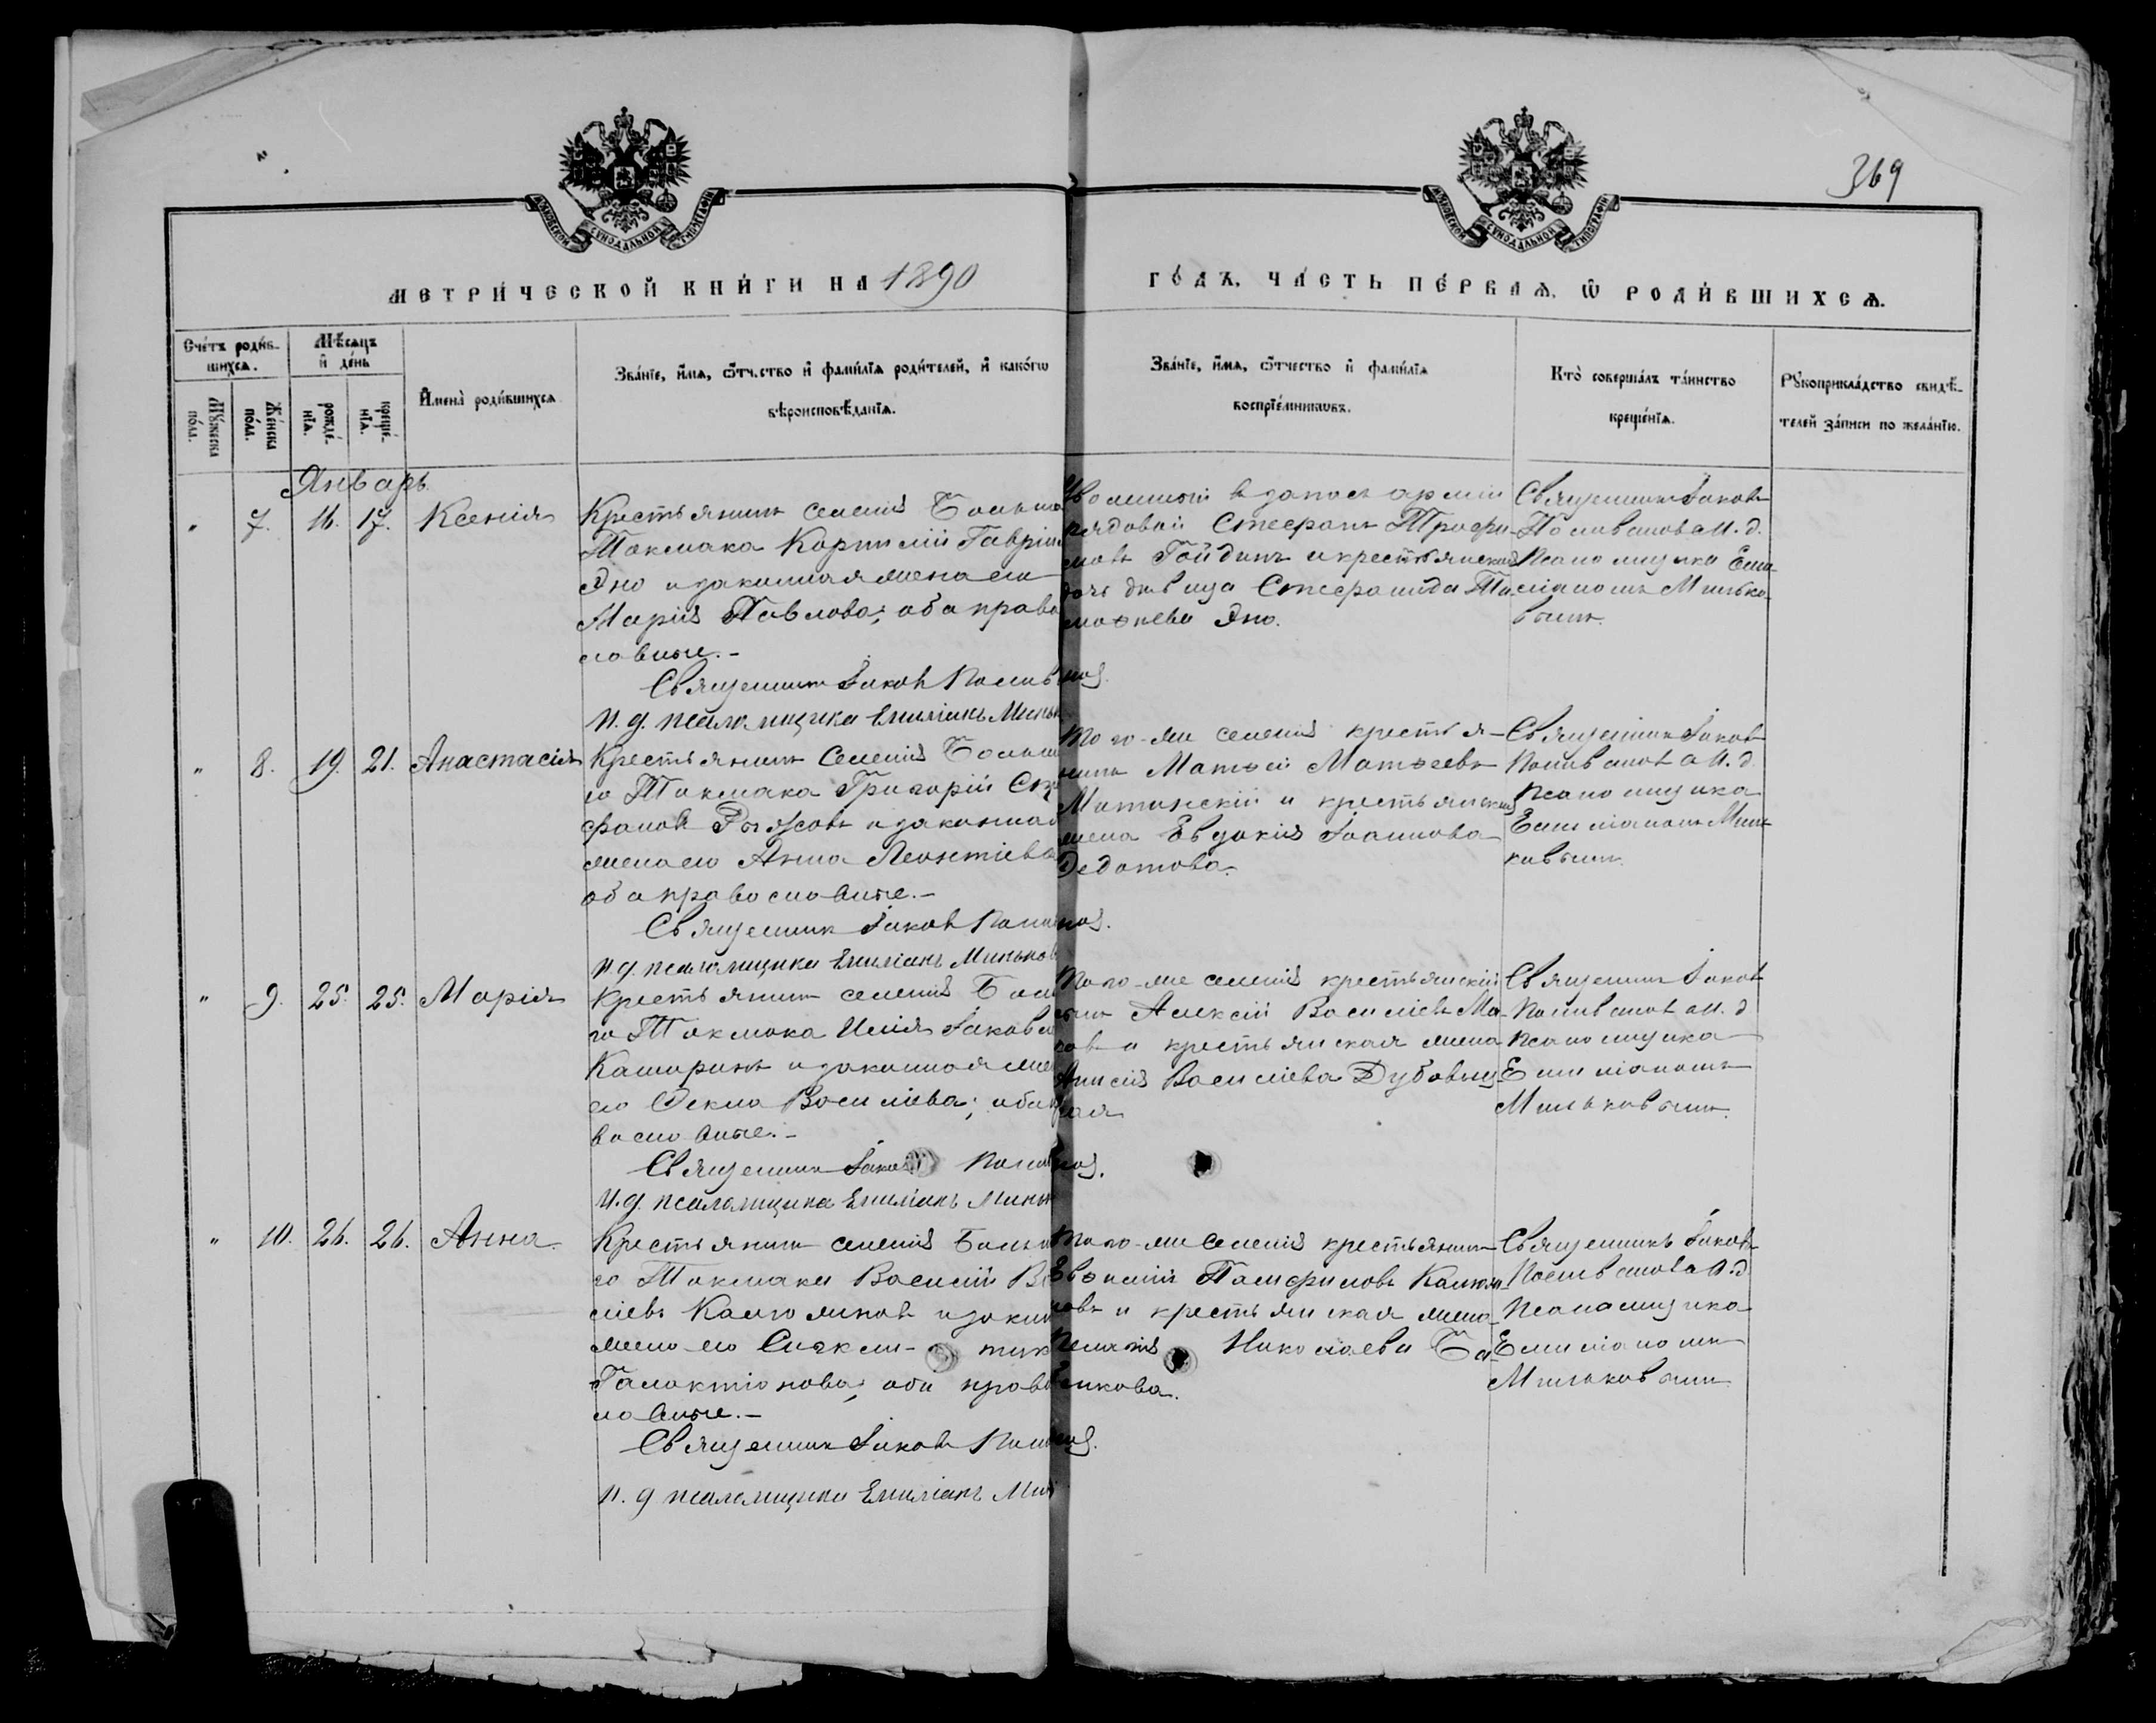 369
МОСКОВСКОЙ СѴНОДАЛЬНОЙ ТИПОГРАФІИ
МОСКОВСКОЙ СѴНОДАЛЬНОЙ ТИПОГРАФІИ
МЕТРИ́ЧЕСКОЙ КНИ́ГИ НА 1890
ГО́ДЪ, ЧА́СТЬ ПЕ́РВАѦ, Ѿ РОДИ́ВШИХСѦ.
Сче́тъ роди́в-
шихсѧ.
Мѣ́сѧцъ
и҆ де́нь
Мꙋ́жеска по́ла.
Же́нска по́ла.
рожде́-нїѧ.
креще́-нїѧ.
И҆мена̀ роди́вшихсѧ
Зва́нїе, и҆́мѧ, ѻ҆́тчество и҆ фамѝлїѧ роди́телей, и҆ како́гѡ
вѣроисповѣ́данїѧ.
Зва́нїе, и҆́мѧ, ѻ҆́тчество и҆ фамѝлїѧ
воспрїе́мникѡвъ.
Кто̀ соверша́лъ та́инство
креще́нїѧ.
Рꙋкоприкла́дство свидѣ́-
телей за́писи по жела́нїю.
Январь.
" 7. 16. 17. Ксенія
Крестьянинъ селенія Больша
Токмака Корнилій Гавріи
Дно и законная жена его
Марія Павлова; оба право
славные.-
Священникъ Іаковъ Поливановъ.
И. д. псаломщика Емиліанъ Миньк
Уволенный в запасъ арміи
рядовой Стефанъ Трофи-
мовъ Гайдинъ и крестьянская
дочь девица Стефанида Ти-
моѳеева Дно.
Священникъ Іаковъ
Поливановъ и. д.
псаломщика Еми-
ліаномъ Минько-
вымъ.
" 8. 19. 21. Анастасія
Крестьянинъ селенія Больша
го Токмака Григорій Сте
фановъ Рыжовъ и законная
жена его Анна Леонтіева
оба православные.-
Священникъ Іаковъ Поливановъ.
И. д. псаломщика Емиліанъ Миньков
Того-же селенія крестья-
нинъ Матѳей Матѳеевъ
Митинскій и крестьянская
жена Евдокія Іоаннова
Федотова.
Священникъ Іаковъ
Поливановъ и. д.
псаломщика
Емиліаномъ Минь-
ковымъ.
" 9. 25. 25. Марія
Крестьянинъ селенія Боль
го Токмака Илія Іаковле
Каширинъ и законная жен
его Ѳекла Василіева; оба п
вославные.-
Священникъ Іаковъ Поливановъ.
И. д. псаломщика Емиліанъ Миньк
Того-же селенія крестьянскій
сынъ Алексій Василіевъ Ма-
ковъ и крестьянская жена
Анисія Василіева Дубовиц-
кая
Священникъ Іаковъ
Поливановъ и. д
псаломщика
Емиліаномъ
Миньковымъ.
" 10. 26. 26. Анна.
Крестьянинъ селенія Больша
го Токмака Василій Ва
сіевъ Калюжновъ и закон
жена его Синкли- тик
Галактіонова; оба право
славные.-
Священникъ Іаковъ Поливановъ.
И. д псаломщика Емиліанъ Мин
Того-же селенія крестьянинъ
Евѳимій Памфиловъ
новъ и крестьянская жена
Пелагія Николаева Ба-
бенкова.
Священникъ Іаковъ
Поливановъ и. д
псаломщика
Емиліаномъ
Миньковымъ